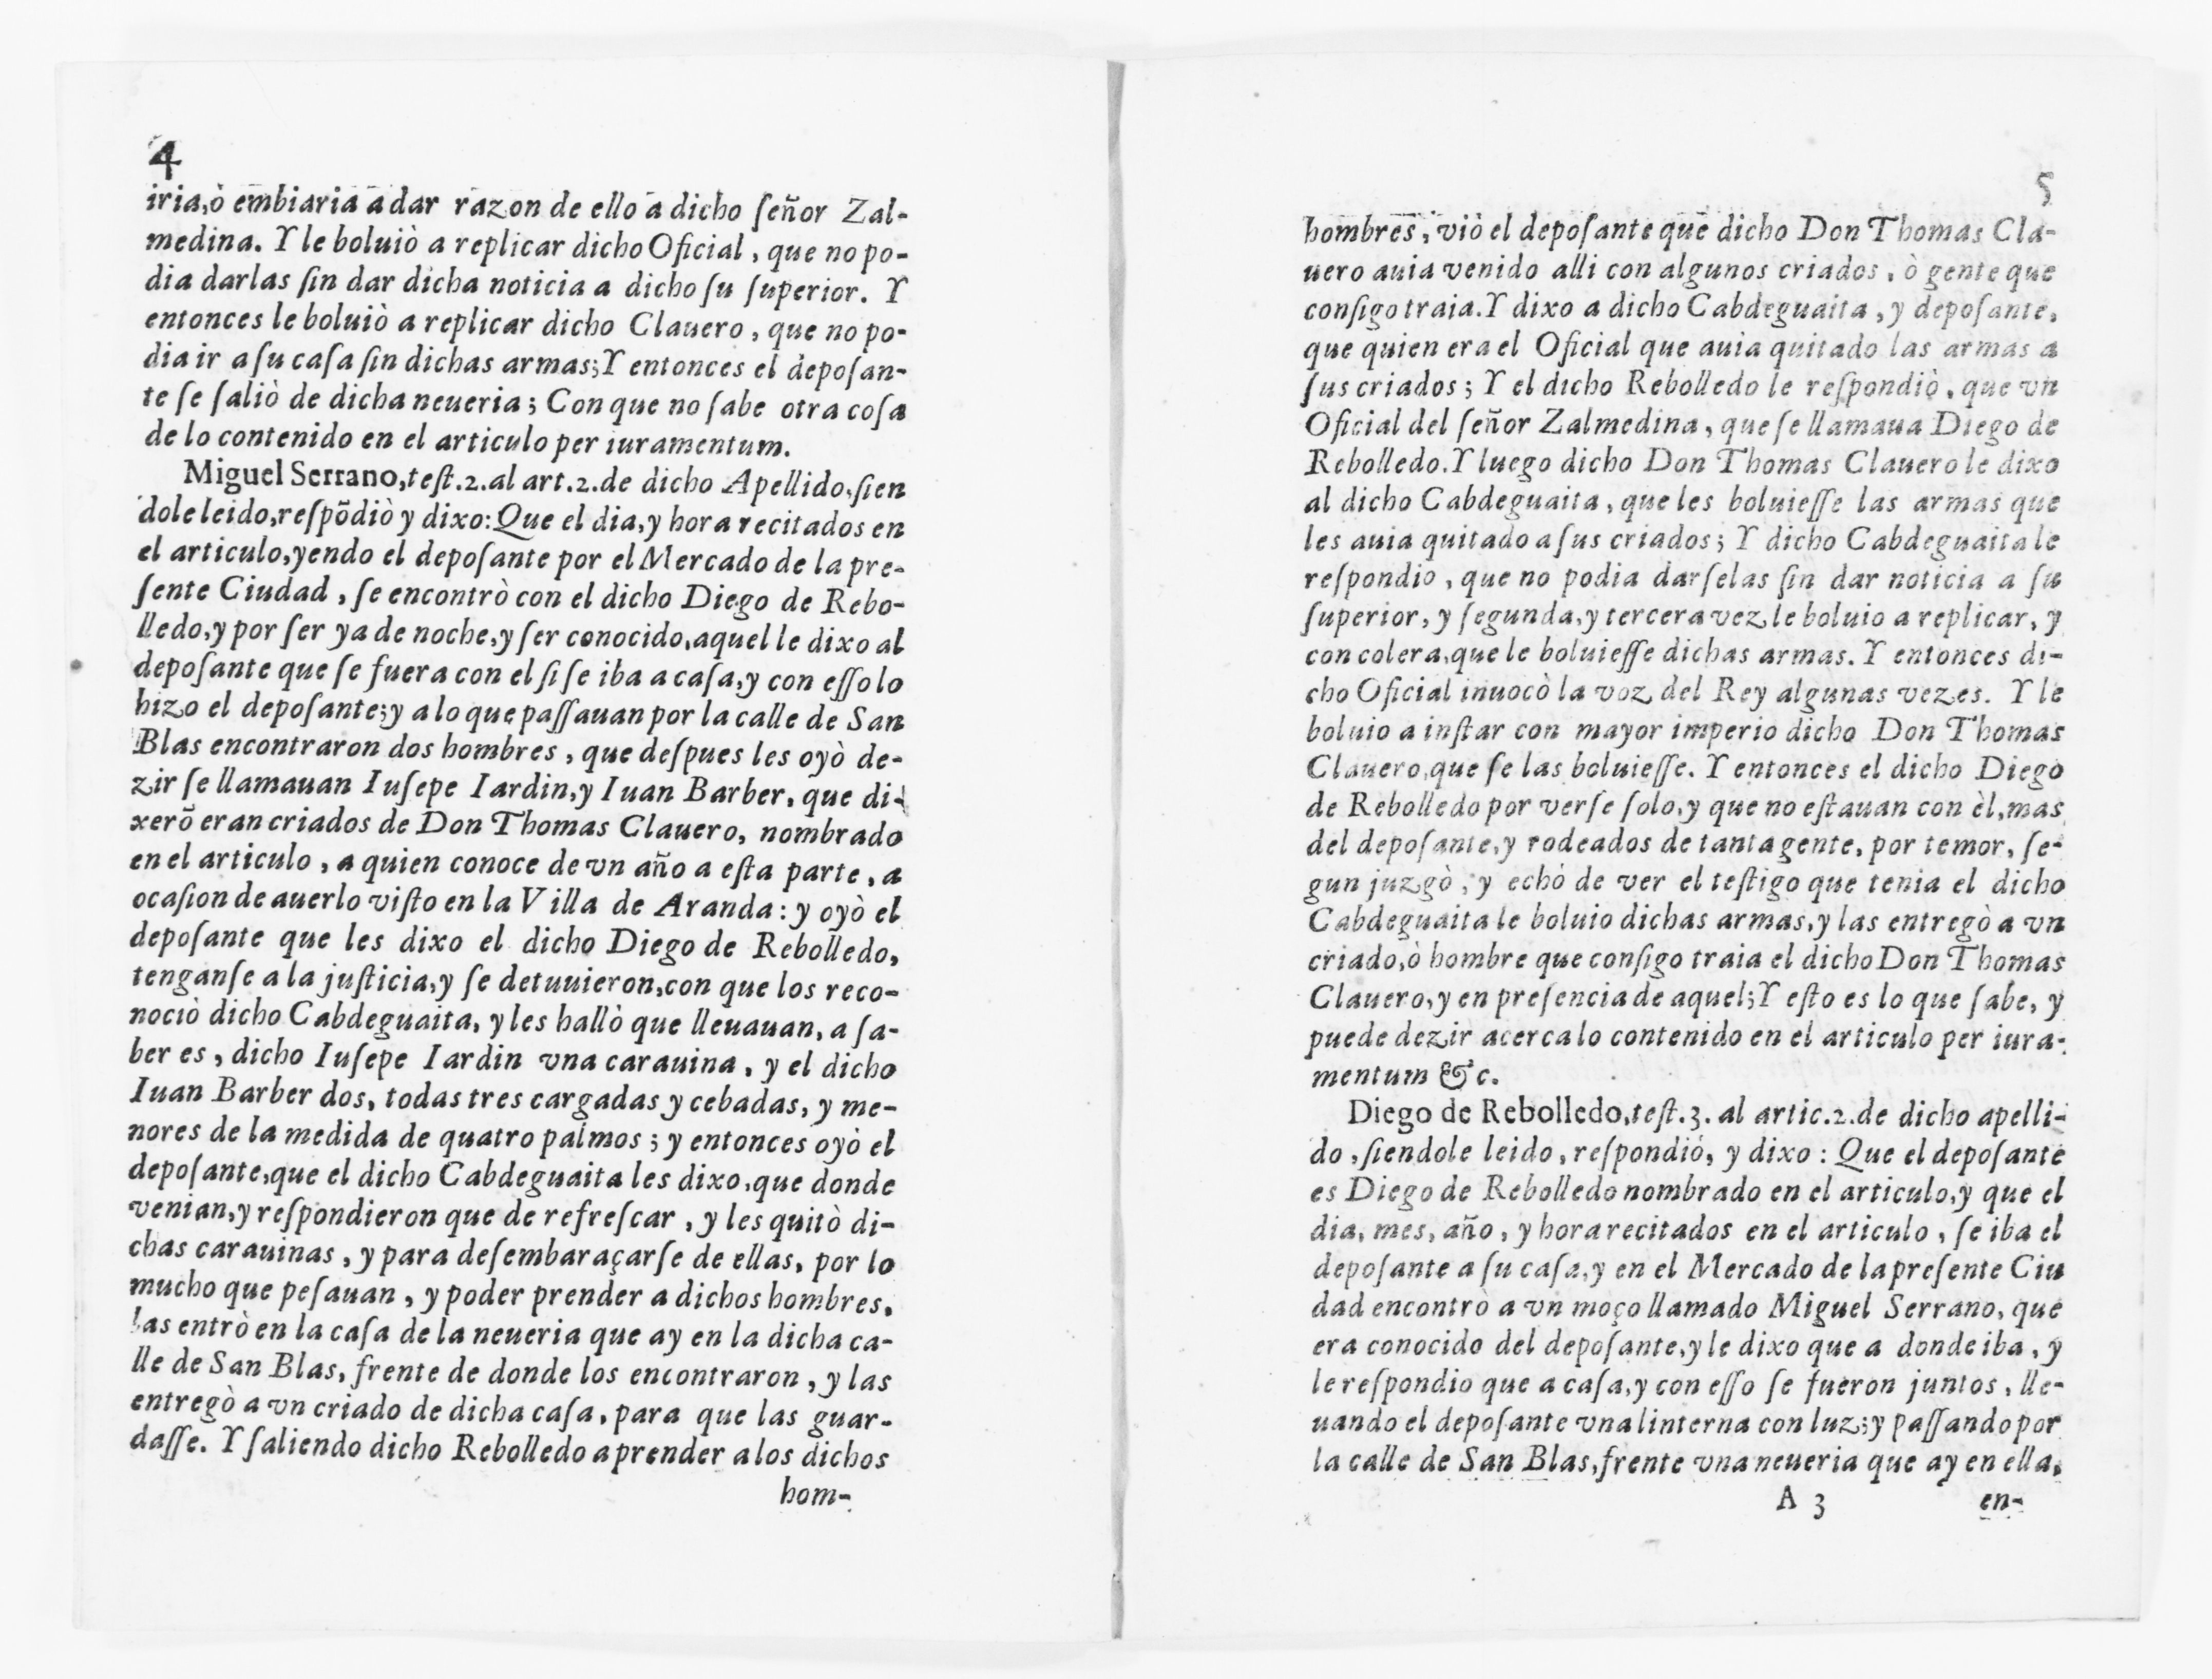 4
iria,ò embiaria a dar razon de ello a dicho ſeñor Zal-
medina. Y le boluiò a replicar dicho Oficial, que no po-
dia darlas ſin dar dicha noticia a dicho ſu ſuperior. Y
entonces le boluiò a replicar dicho Clauero, que no po-
dia ir a ſu caſa ſin dichas armas; Y entonces el depoſan-
te ſe ſaliò de dicha neueria; Con que no ſabe otra coſa
de lo contenido en el articulo per iuramentum.
Miguel Serrano, teſt.2.al art.2.de dicho Apellido, ſien
dole leido, reſpõdiò y dixo: Que el dia, y hora recitados en
el articulo, yendo el depoſante por el Mercado de la pre-
ſente Ciudad, ſe encontrò con el dicho Diego de Rebo-
lledo, y por ſer ya de noche, y ſer conocido, aquel le dixo al
depoſante que ſe fuera con el ſi ſe iba a caſa, y con eſſo lo
hizo el depoſante; y a lo que paſſauan por la calle de San
Blas encontraron dos hombres, que deſpues les oyò de-
zir ſe llamauan Iuſepe Iardin, y Iuan Barber, que di-
xerõ eran criados de Don Thomas Clauero, nombrado
en el articulo, a quien conoce de vn año a eſta parte, a
ocaſion de auerlo viſto en la Villa de Aranda: y oyò el
depoſante que les dixo el dicho Diego de Rebolledo,
tenganſe a la juſticia, y ſe detuuieron, con que los reco-
nociò dicho Cabdeguaita, y les hallò que lleuauan, a ſa-
ber es, dicho Iuſepe Iardin vna carauina, y el dicho
Iuan Barber dos, todas tres cargadas y cebadas, y me-
nores de la medida de quatro palmos; y entonces oyò el
depoſante, que el dicho Cabdeguaita les dixo, que donde
venian, y reſpondieron que de refreſcar, y les quitò di-
chas carauinas, y para deſembaraçarſe de ellas, por lo
mucho que peſauan, y poder prender a dichos hombres,
las entrò en la caſa de la neueria que ay en la dicha ca-
lle de San Blas, frente de donde los encontraron, y las
entregò a vn criado de dicha caſa, para que las guar-
daſſe. Y ſaliendo dicho Rebolledo a prender a los dichos
hom-
5
hombres, viò el depoſante que dicho Don Thomas Cla-
uero auia venido alli con algunos criados, ò gente que
conſigo traia. Y dixo a dicho Cabdeguaita, y depoſante,
que quien era el Oficial que auia quitado las armas a
ſus criados; Y el dicho Rebolledo le reſpondiò, que vn
Oficial del ſeñor Zalmedina, que ſe llamaua Diego de
Rebolledo. Y luego dicho Don Thomas Clauero le dixo
al dicho Cabdeguaita, que les boluieſſe las armas que
les auia quitado a ſus criados; Y dicho Cabdeguaita le
reſpondio, que no podia darſelas ſin dar noticia a ſu
ſuperior, y ſegunda, y tercera vez le boluio a replicar, y
con colera, que le boluieſſe dichas armas. Y entonces di-
cho Oficial inuocò la voz del Rey algunas vezes. Y le
boluio a inſtar con mayor imperio dicho Don Thomas
Clauero, que ſe las boluieſſe. Y entonces el dicho Diego
de Rebolledo por verſe ſolo, y que no eſtauan con èl, mas
del depoſante, y rodeados de tanta gente, por temor, ſe-
gun juzgò, y echò de ver el teſtigo que tenia el dicho
Cabdeguaita le boluio dichas armas, y las entregò a vn
criado, ò hombre que conſigo traia el dicho Don Thomas
Clauero, y en preſencia de aquel; Y eſto es lo que ſabe, y
puede dezir acerca lo contenido en el articulo per iura-
mentum &c.
Diego de Rebolledo, teſt.3. al artic.2.de dicho apelli-
do, ſiendole leido, reſpondiò, y dixo: Que el depoſante
es Diego de Rebolledo nombrado en el articulo, y que el
dia, mes, año, y hora recitados en el articulo, ſe iba el
depoſante a ſu caſa, y en el Mercado de la preſente Ciu
dad encontrò a vn moço llamado Miguel Serrano, que
era conocido del depoſante, y le dixo que a donde iba, y
le reſpondio que a caſa, y con eſſo ſe fueron juntos, lle-
uando el depoſante vna linterna con luz; y paſſando por
la calle de San Blas, frente vna neueria que ay en ella,
A 3 en-